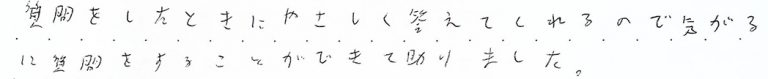 質問をしたときにやさしく答えてくれるので気がる
に質問をすることができて助りました。